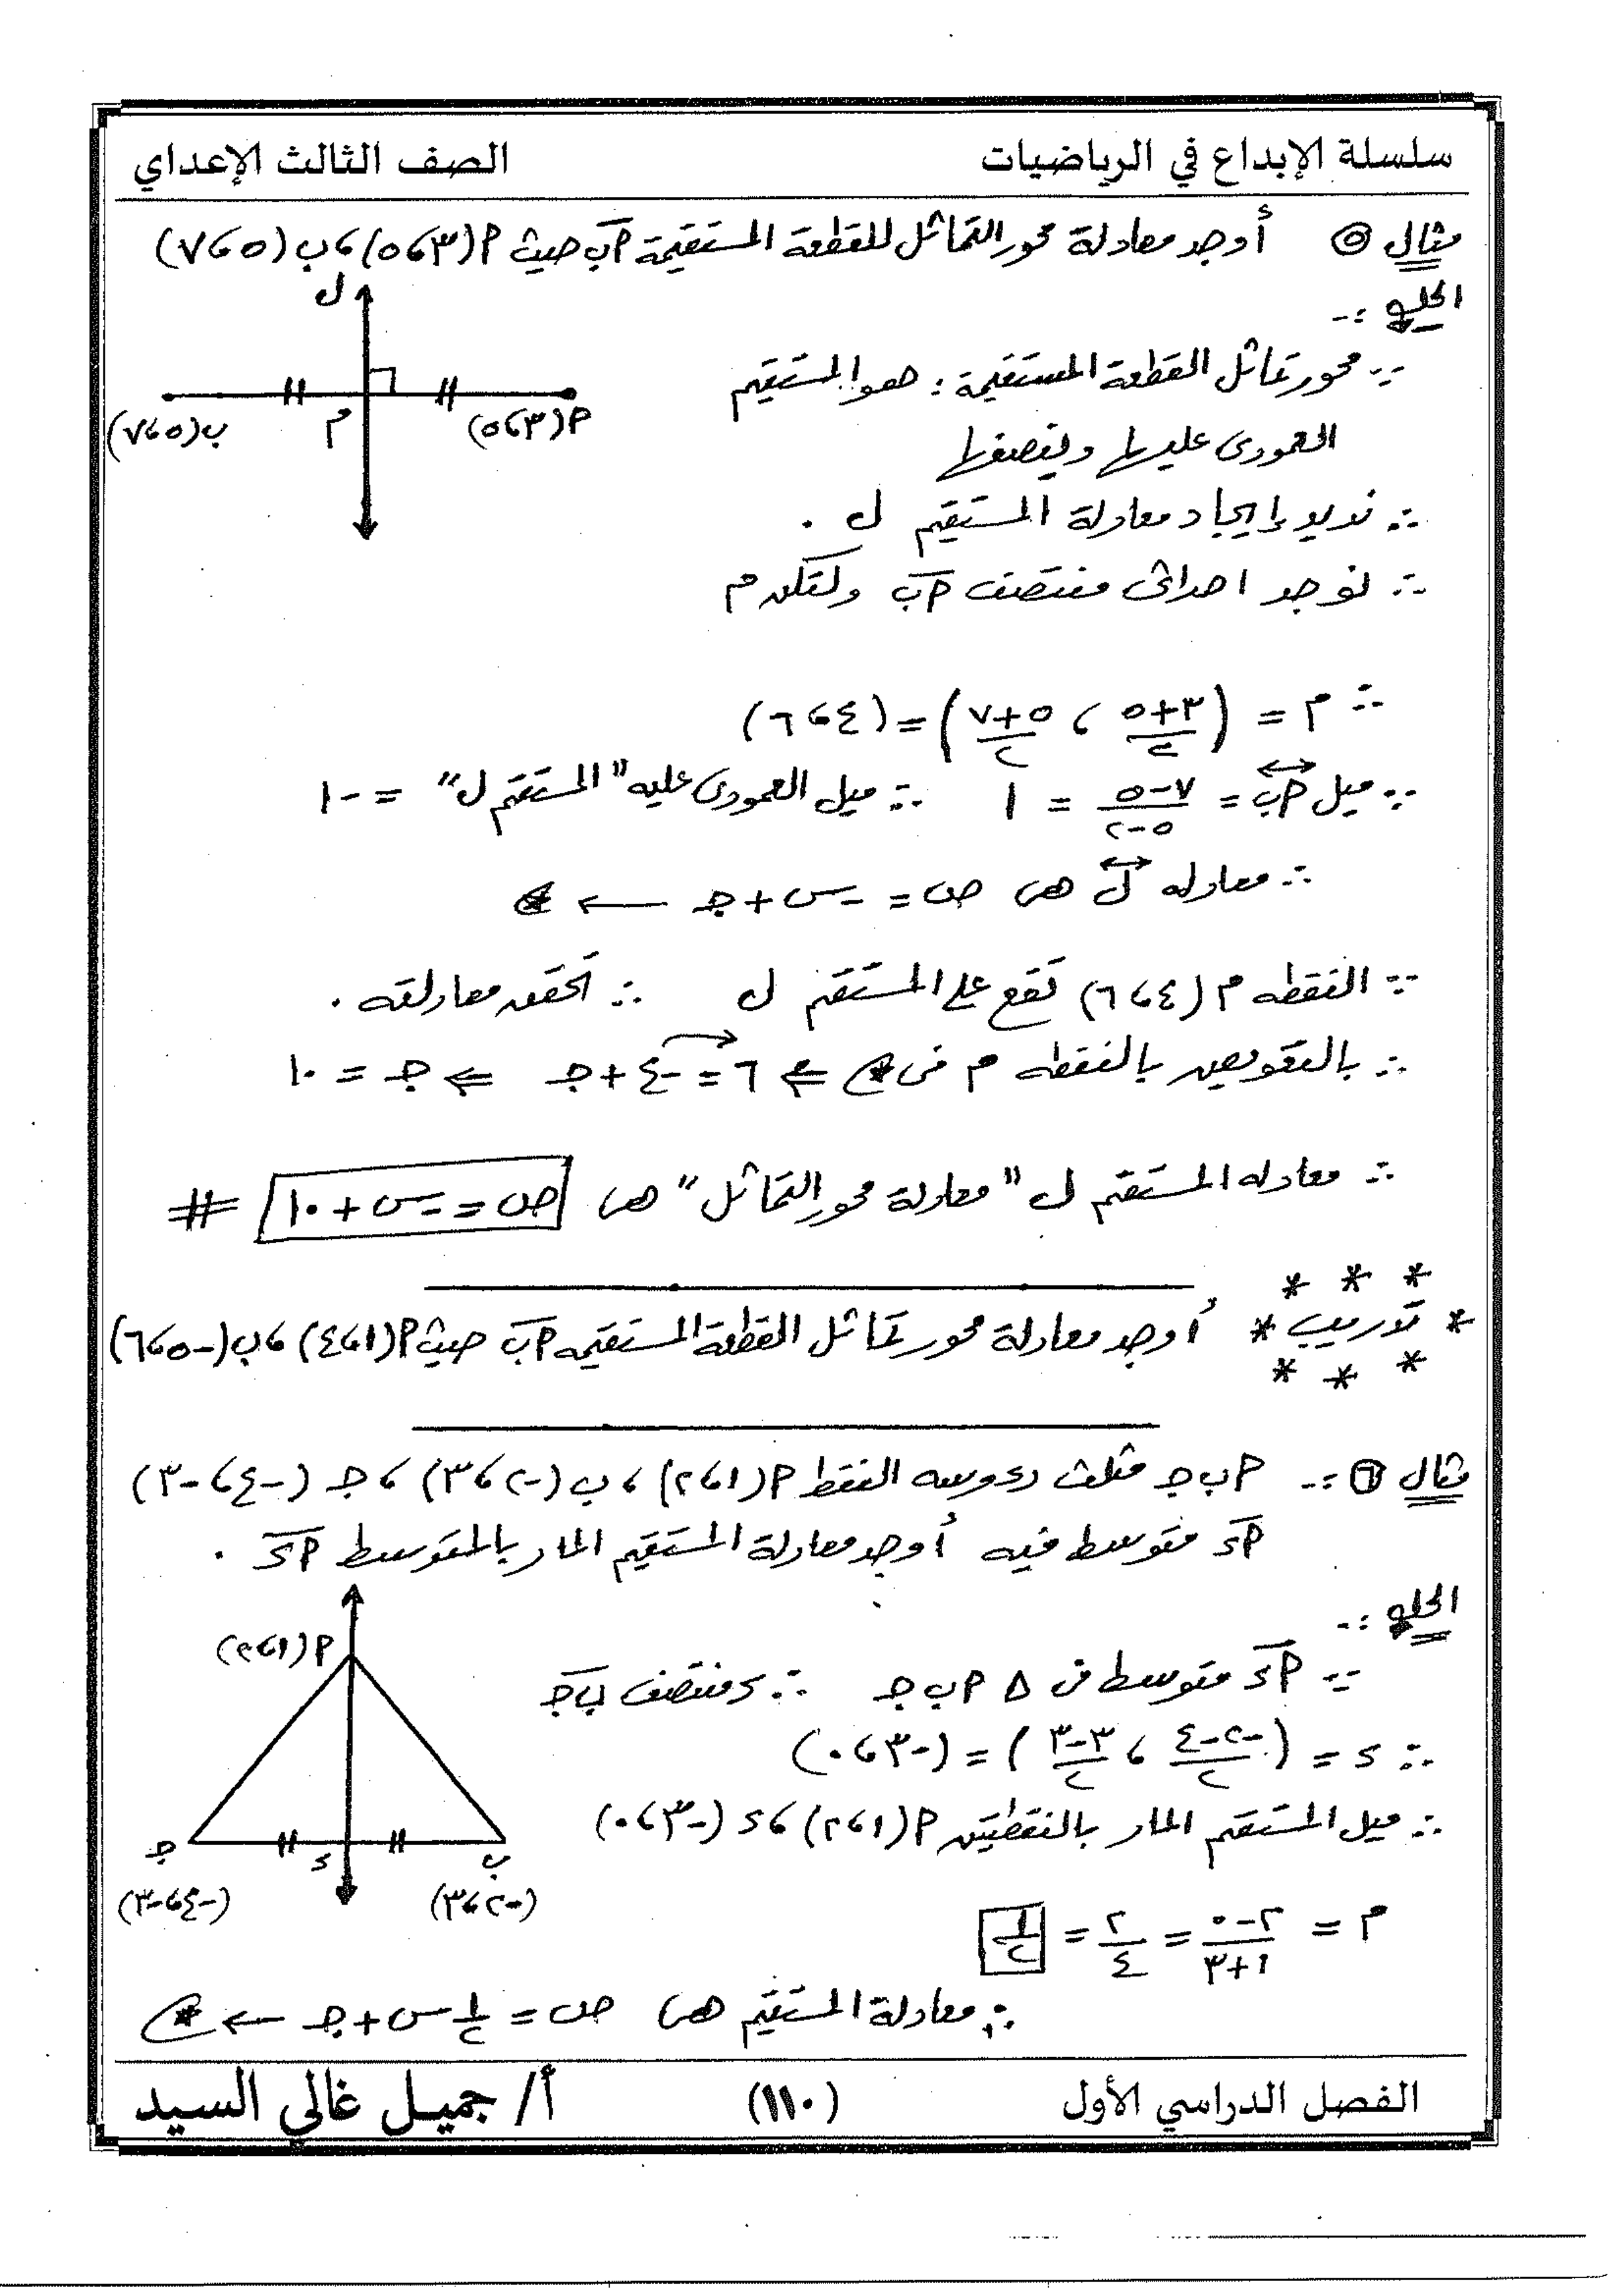 سلسلة الإبداع في الرياضيات الصف الثالث الإعداي
مثال ٥ أوجد معادلة محور التماثل للقطعة المستقيمة أب حيث أ(٣، ٥)، ب(٥، ٧)
الحل :-
ل
∵ محور تماثل القطعة المستقيمة : هو المستقيم
أ(٣، ٥) م ب(٥، ٧)
العمودى عليها وينصفها
∴ نريد إيجاد معادلة المستقيم ل .
∴ نوجد احداثى منتصف أب ولتكن م
∴ م = (٣+٥/٢ ، ٥+٧/٢) = (٤، ٦)
∵ ميل أب = ٧-٥/٥-٢ = ١ ∴ ميل العمودى عليه "المستقيم ل" = -١
∴ معادله ل هى ص = -س + جـ ← *
∵ النقطه م (٤، ٦) تقع على المستقيم ل ∴ تحقق معادلته .
∴ بالتعويض بالنقطه م فى * ⇐ ٦ = -٤ + جـ ⇐ جـ = ١٠
∴ معادله المستقيم ل "معادلة محور التماثل" هى ص = -س + ١٠ #
* * *
* تدريب * أوجد معادلة محور تماثل القطعة المستقيمه أب حيث أ(١، ٤)، ب(-٥، ٦)
* * *
مثال ٦ :- أ ب جـ مثلث رءوسه النقط أ(١، ٢)، ب(-٢، ٣)، جـ(-٤، -٣)
أد متوسط فيه أوجد معادلة المستقيم المار بالمتوسط أد .
الحل :-
أ(١، ٢)
∵ أد متوسط فى Δ أ ب جـ ∴ د منتصف ب جـ
∴ د = (-٢-٤/٢ ، ٣-٣/٢) = (-٣، ٠)
∴ ميل المستقيم المار بالنقطتين أ(١، ٢)، د(-٣، ٠)
ب د جـ
(-٢، ٣) (-٤، -٣)
م = ٢-٠/١+٣ = ٢/٤ = ١/٢
∴ معادلة المستقيم هى ص = ١/٢ س + جـ ← *
الفصل الدراسي الأول (١١٠) أ/ جميل غالي السيد